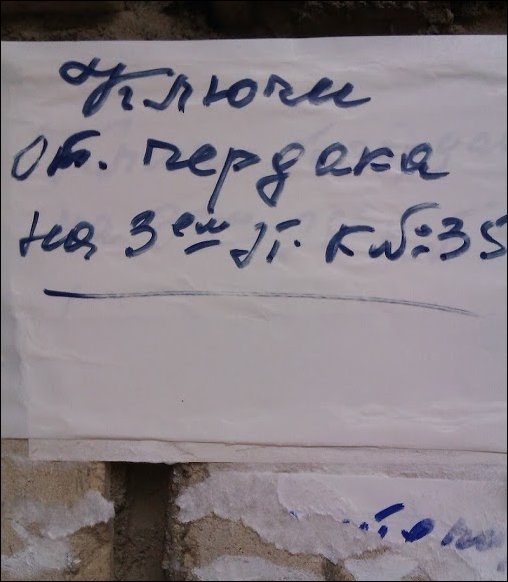 Ключи
от. чердака
на 3ем эт. кв №35